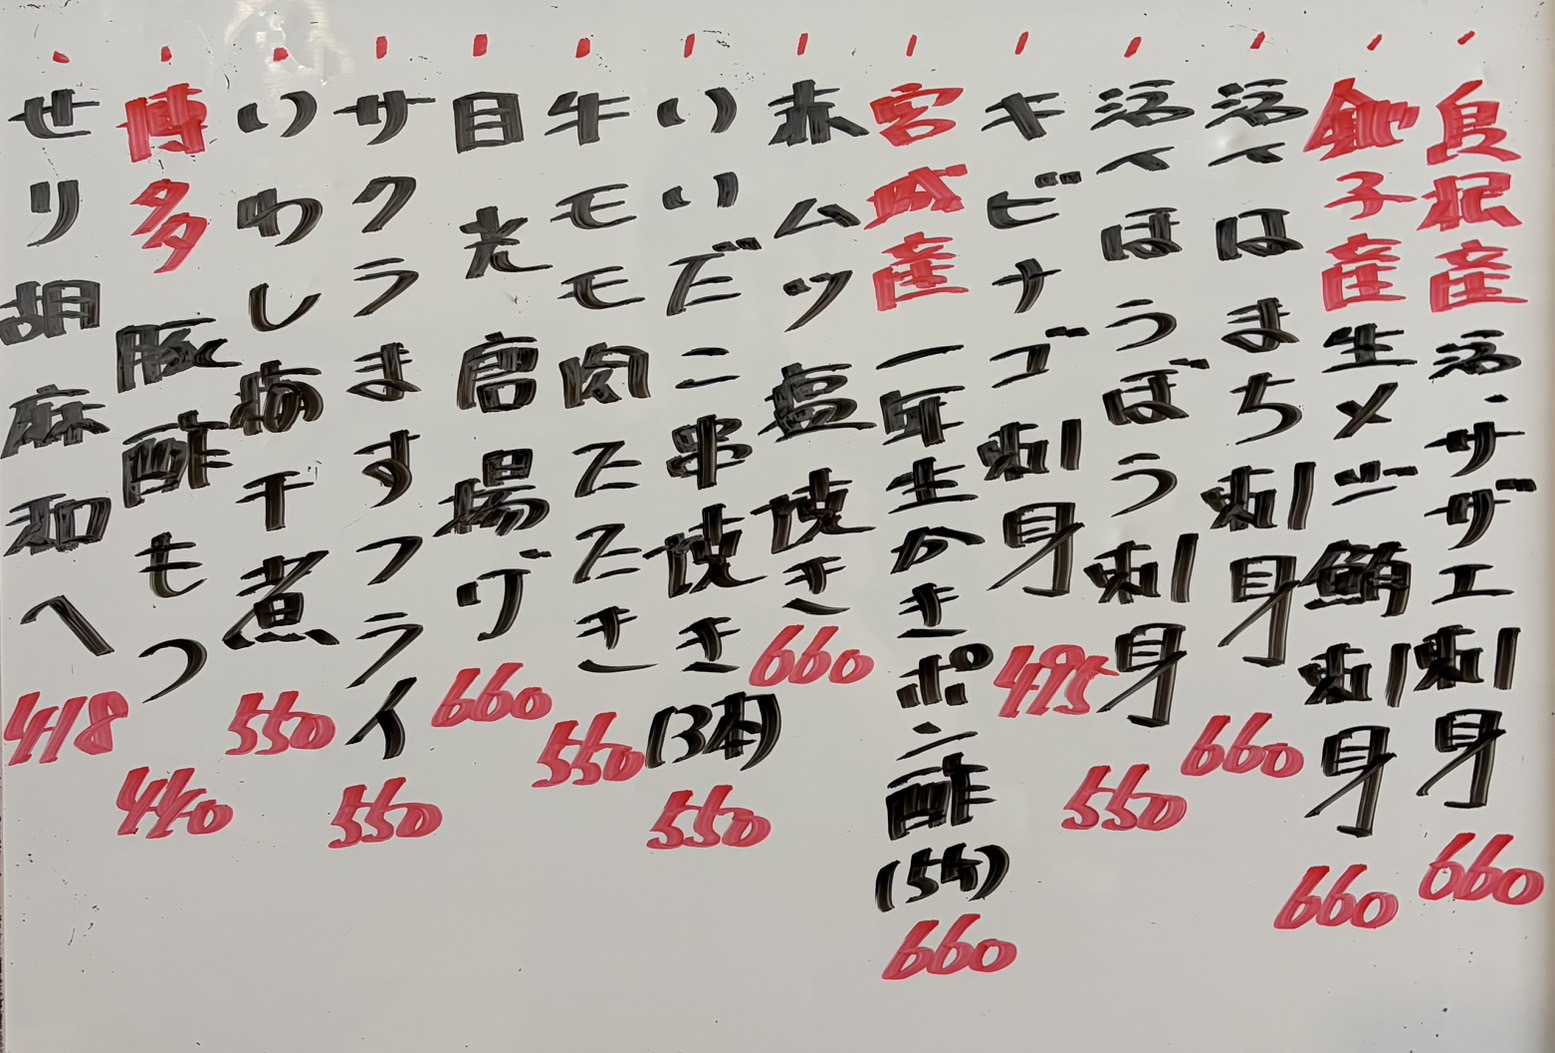 島根産活・サザエ刺身 660
銚子産生メジ鮪刺身 660
活〆はまち刺身 660
活〆ほうぼう刺身 550
キビナゴ刺身 495
宮城産一年生かきポン酢(5ケ) 660
赤ムツ塩焼き 660
いいだこ串焼き(3本) 550
牛モモ肉たたき 550
目光唐揚げ 660
サクラますフライ 550
いわし梅干煮 550
博多豚酢もつ 440
せり胡麻和へ 418